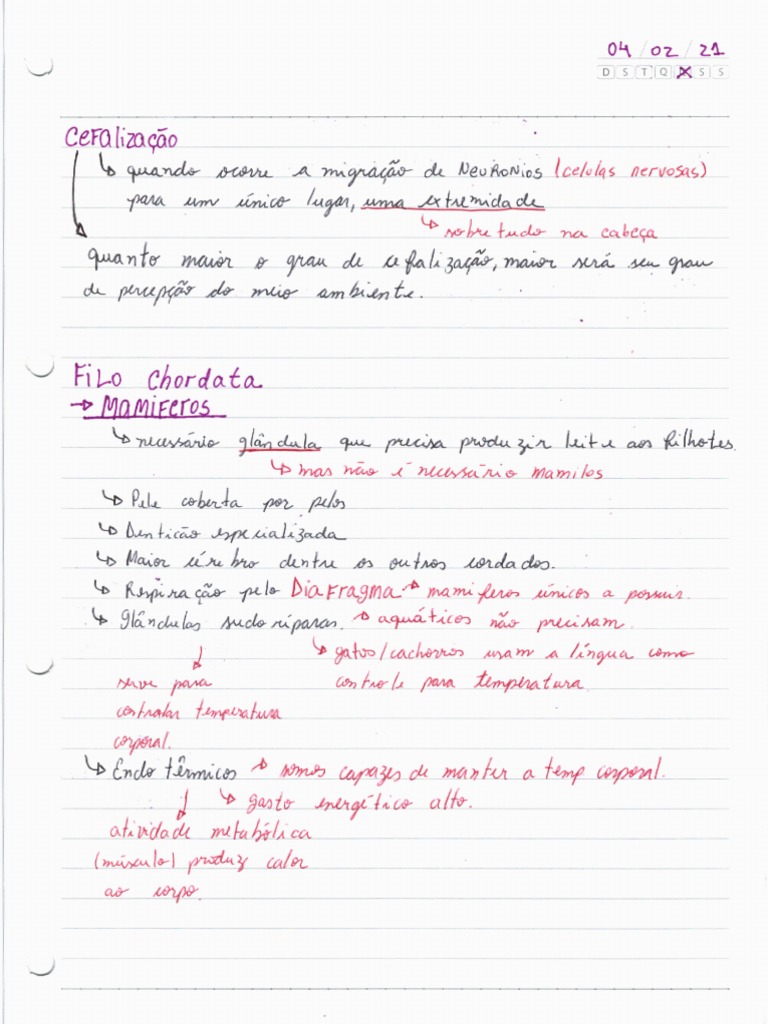 04 / 02 / 21
D S T Q X S S
Cefalização
↳ quando ocorre a migração de Neuronios (celulas nervosas)
para um único lugar, uma extremidade
↳ sobre tudo na cabeça
quanto maior o grau de cefalização, maior será seu grau
de percepção do meio ambiente.
Filo Chordata
→ Mamiferos
↳ necessário glândula que precisa produzir leite aos filhotes.
↳ mas não é necessário mamilos
↳ Pele coberta por pelos
↳ Dentição especializada
↳ Maior cérebro dentre os outros cordados.
↳ Respiração pelo Diafragma → mamiferos únicos a possuir.
↳ Glândulas sudoríparas. → aquáticos não precisam.
↳ gatos/cachorros usam a língua como
serve para controle para temperatura.
controlar temperatura
corporal.
↳ Endo têrmicos → somos capazes de manter a temp corporal.
↳ gasto energético alto.
atividade metabólica
(músculo) produz calor
ao corpo.